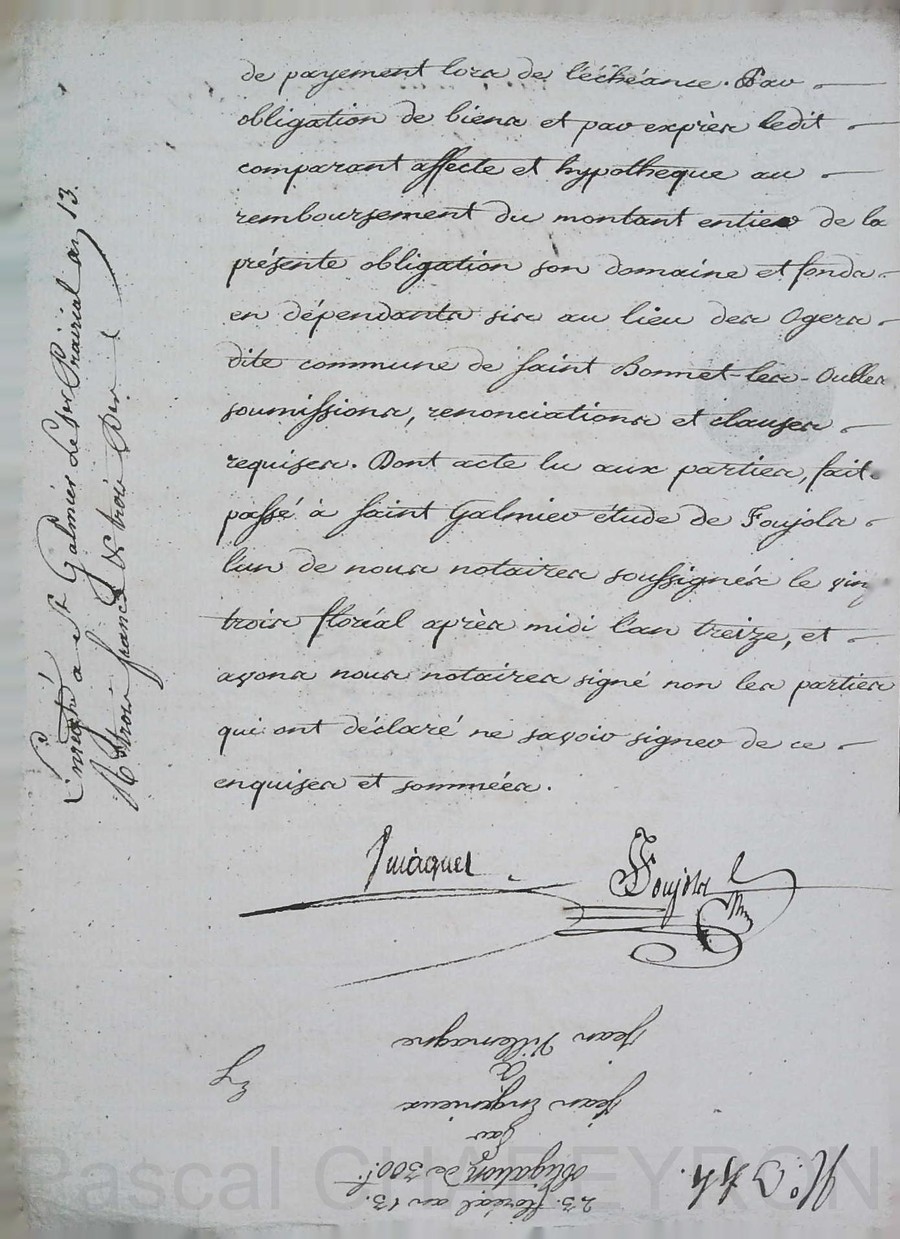 de payement lors de l'échéance. Par
obligation de biens et par exprès ledit
comparant affecte et hypotheque au
remboursement du montant entier de la
présente obligation son domaine et fonds
en dépendants sis au lieu des Ogers
dite commune de saint Bonnet-les-Oulles
soumissions, renonciations et clauses
requises. Dont acte lu aux parties, fait
passé à saint Galmier étude de Foujols
l'un de nous notaires soussignés le vin
trois floréal après midi l'an treize, et
avons nous notaires signé non les parties
qui ont déclaré ne savoir signer de ce
enquises et sommées.
Foujols
Enregistré a St Galmier le Prairial an 13.
trois francs trois
N.° 344.
23. floréal an 13.
obligation de 300f.
par
Jean Engenieux
à
Jean Villemagne
Pascal CHAFEYRON